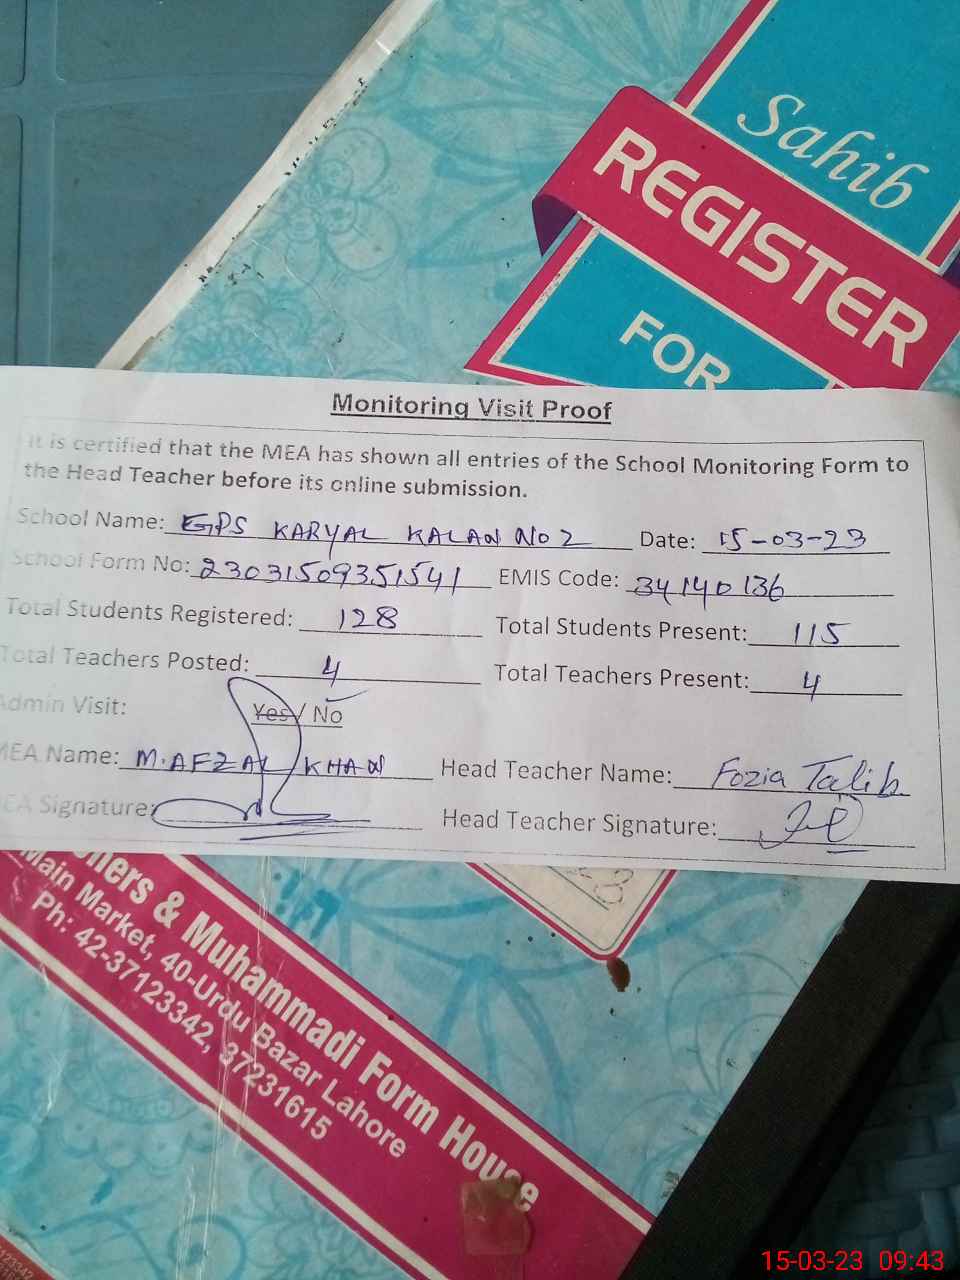 Sahib
REGISTER
FOR
Monitoring Visit Proof
It is certified that the MEA has shown all entries of the School Monitoring Form to
the Head Teacher before its online submission.
School Name: GPS KARYAL KALAN No 2 Date: 15-03-23
School Form No: 23031509351541 EMIS Code: 34140136
Total Students Registered: 128 Total Students Present: 115
Total Teachers Posted: 4 Total Teachers Present: 4
Admin Visit: Yes / No
MEA Name: M. AFZAL KHAN Head Teacher Name: Fozia Talib
MEA Signature: Head Teacher Signature:
& Muhammadi Form House
Main Market, 40-Urdu Bazar Lahore
Ph: 42-37123342, 37231615
15-03-23 09:43